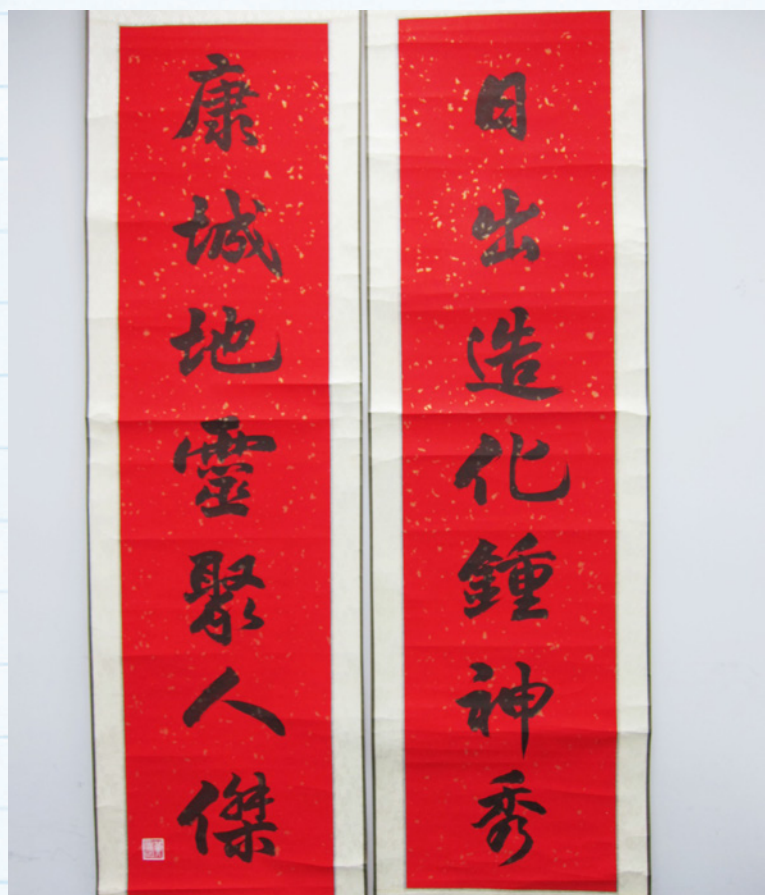 日出造化鍾神秀
康城地靈聚人傑